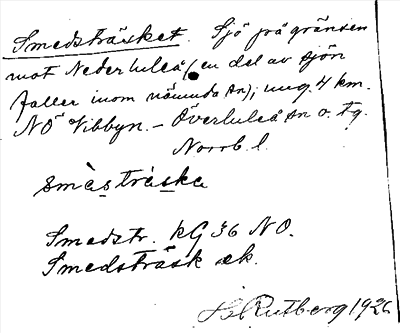 Smedsträsket. Sjö på gränsen
mot Nederluleå (en del av sjön
faller inom nämnda sn), ung. 4 km.
NÖ Vibbyn. – Överluleå sn o. tg.
Norrb. l.
smàsträska
Smedstr. kG 36 NO.
Smedsträsk ek.
Rutberg 1926